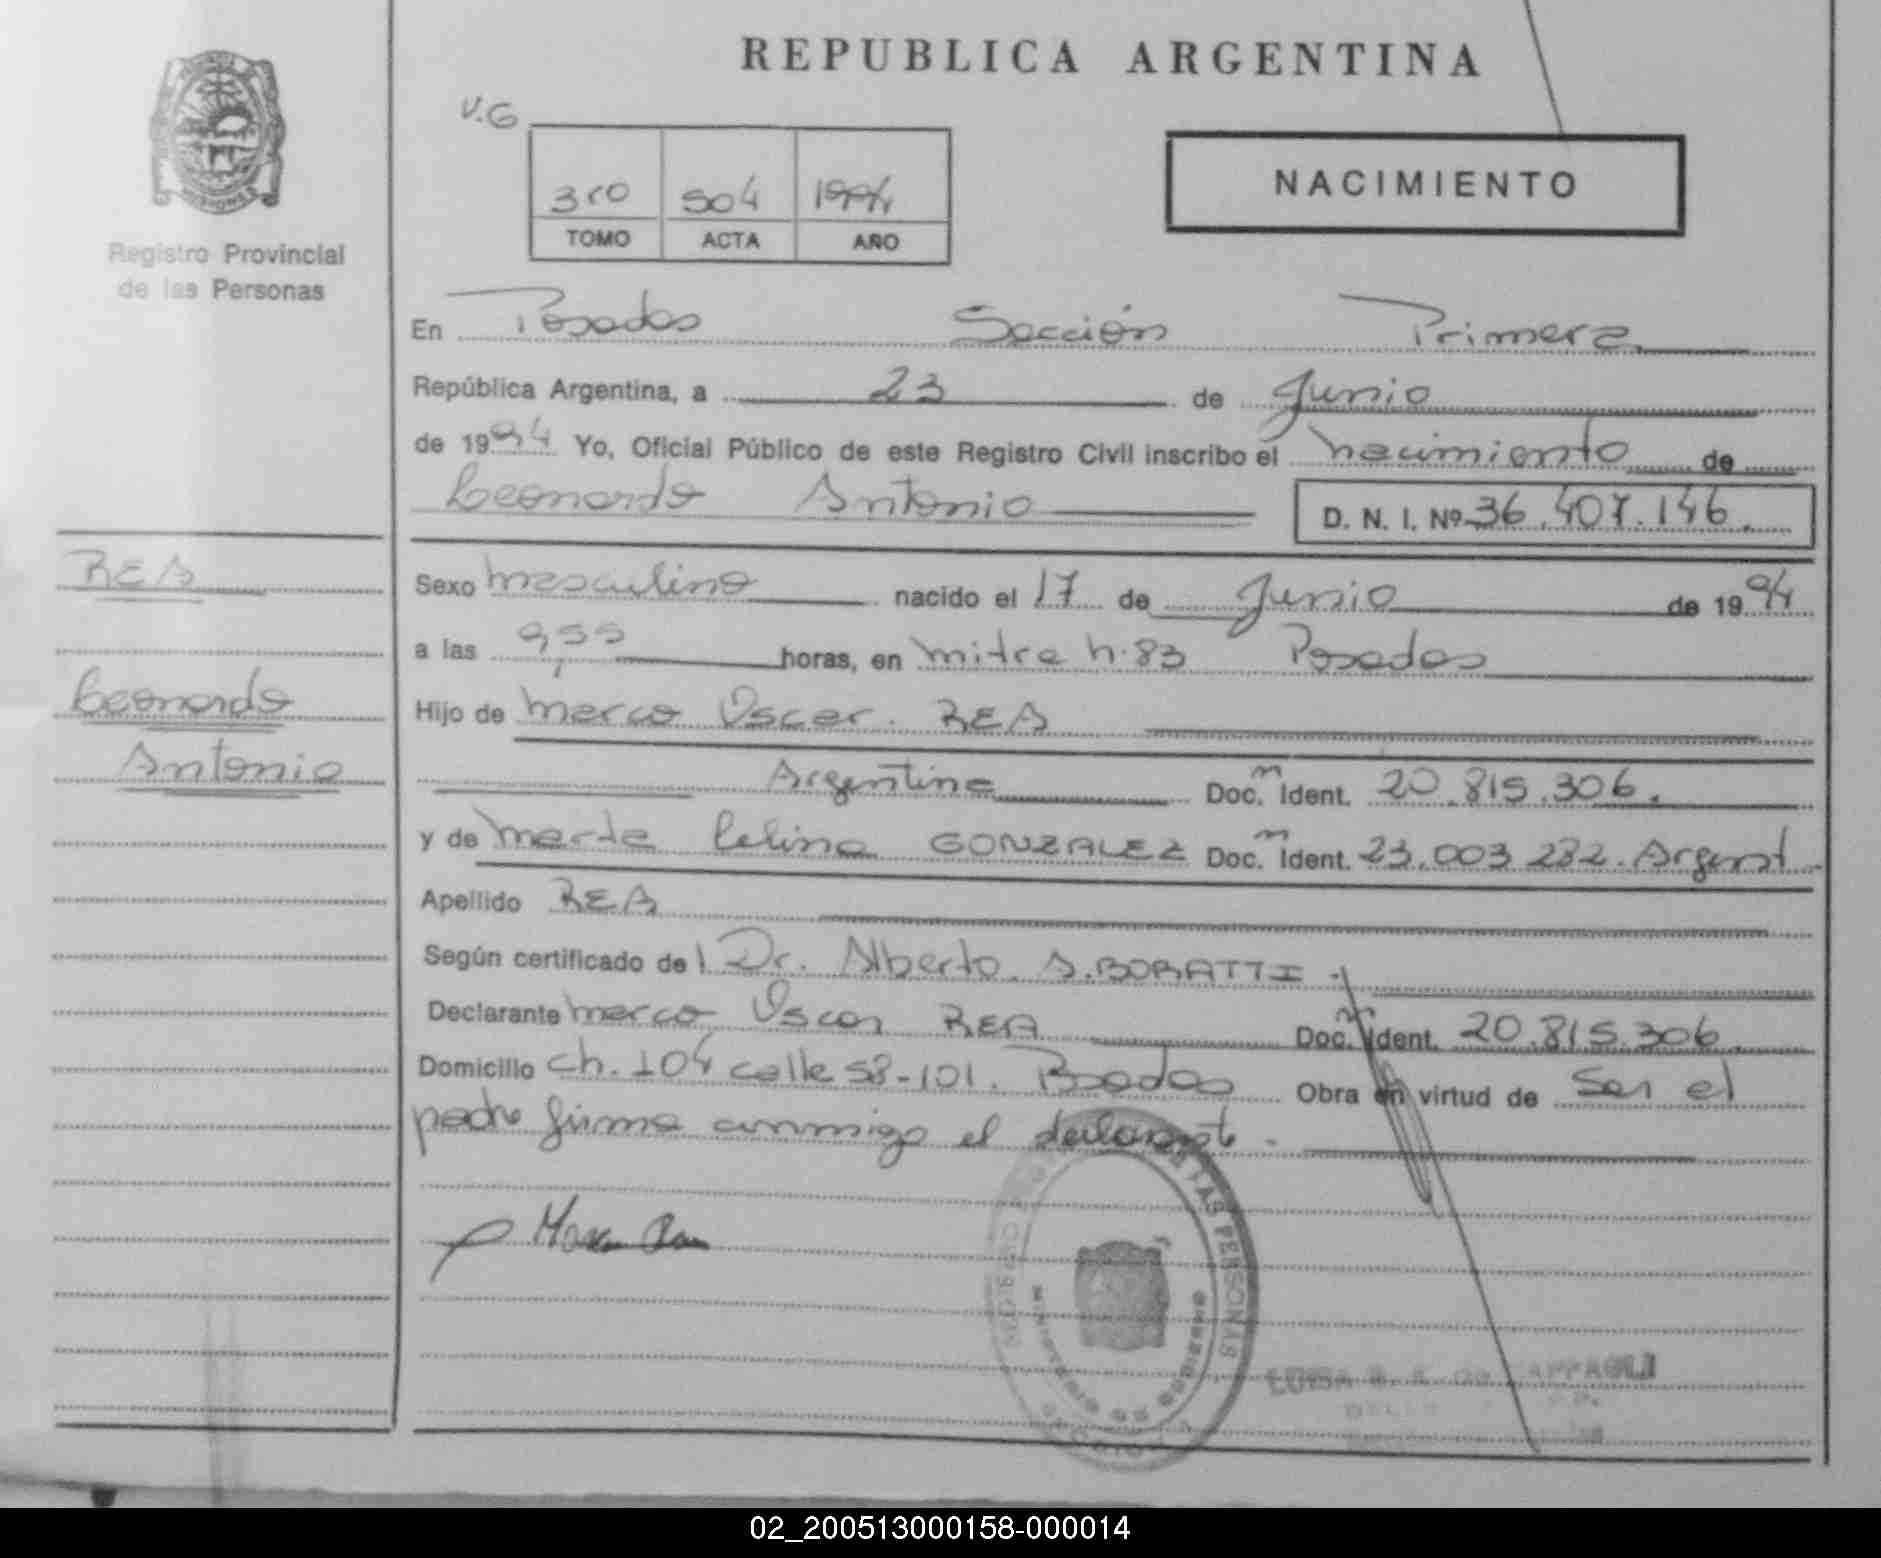 REPUBLICA ARGENTINA
V.G
3ro 504 1994
TOMO ACTA AÑO
NACIMIENTO
MISIONES
Registro Provincial
de las Personas
En Posadas Sección Primera
República Argentina, a 23 de Junio
de 1994 Yo, Oficial Público de este Registro Civil inscribo el nacimiento de
Leonardo Antonio D. N. I. Nº 36.407.146.
REA
Leonardo
Antonio
Sexo masculino nacido el 17 de Junio de 1994
a las 9,55 horas, en mitre n. 83 Posadas
Hijo de Marco Oscar. REA
Argentina Doc.n Ident. 20.815.306.
y de Marta Celina GONZALEZ Doc.n Ident. 23.003.282. Argent.
Apellido REA
Según certificado del Dr. Alberto A. BORATTI.
Declarante Marco Oscar REA Doc.n Ident. 20.815.306.
Domicilio Ch. 104 calle 58-101. Posadas Obra en virtud de Ser el
padre firma conmigo el declarante.
LAS PERSONAS
MINISTERIO DE GOBIERNO
MISIONES
LUISA
02_200513000158-000014